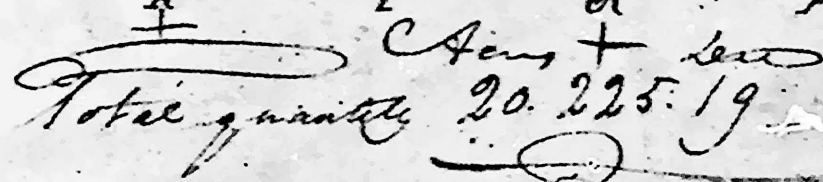 Acres + Dec
Total quantity 20.225.19